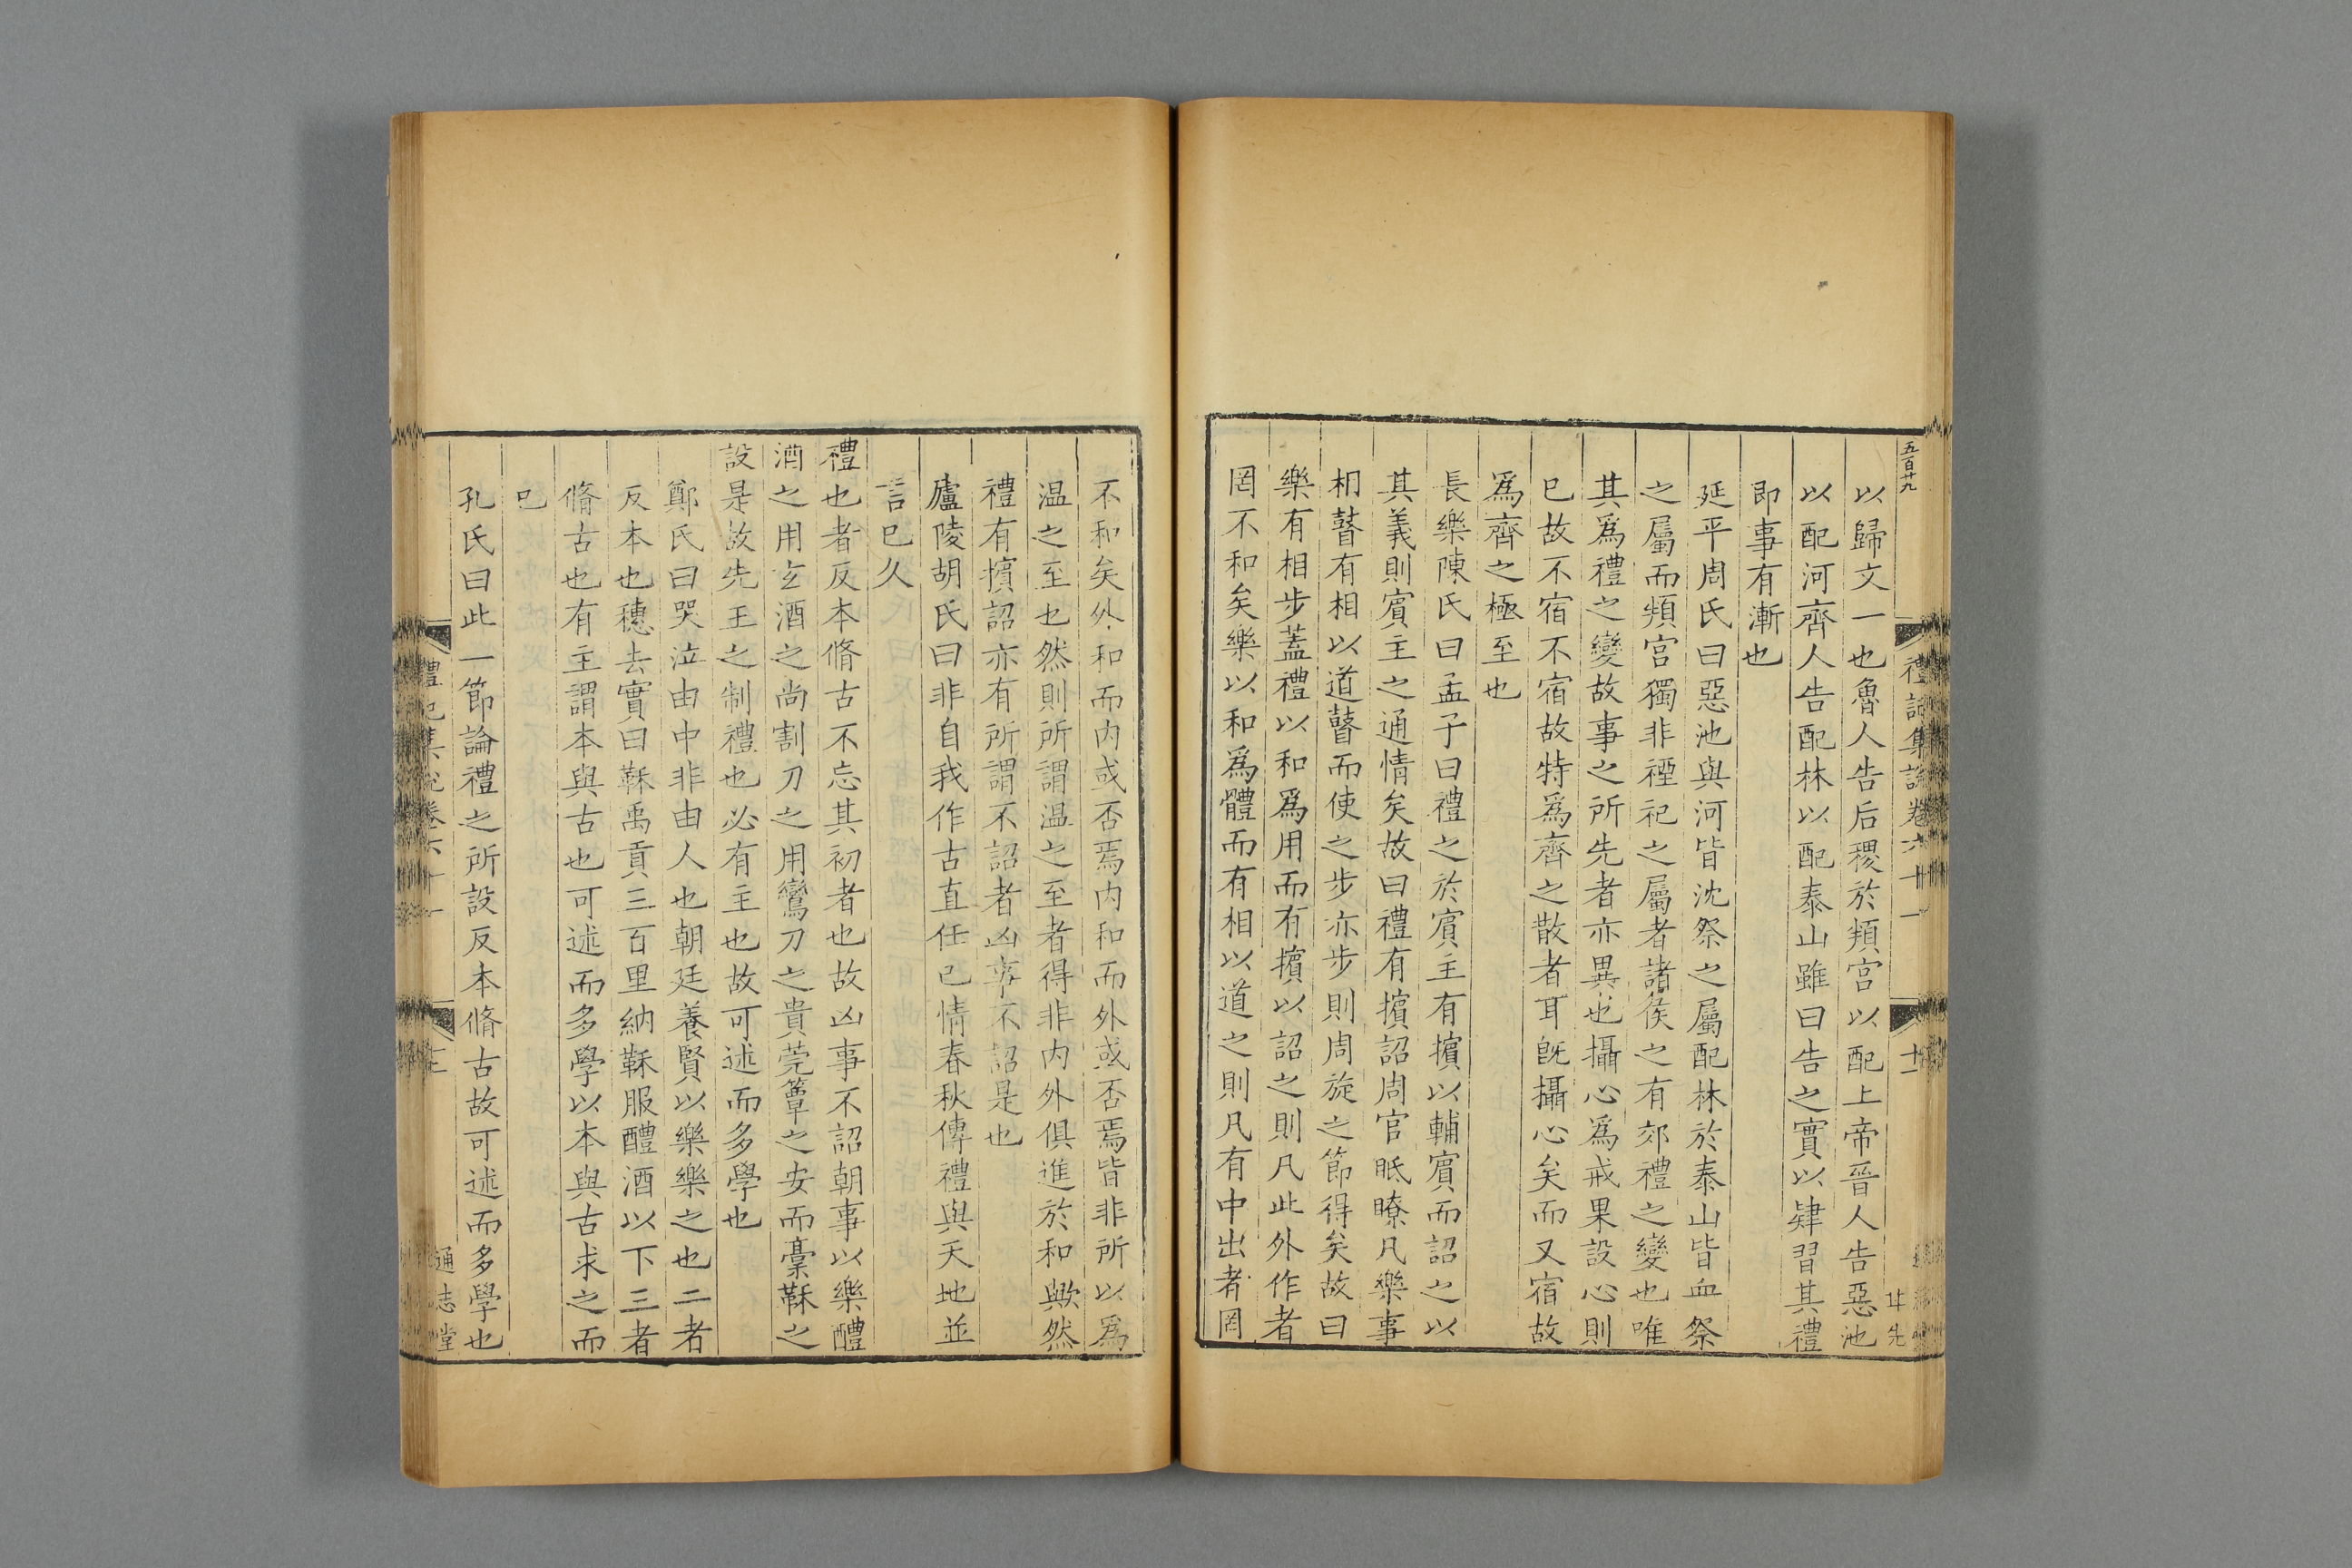 五百廿九
禮記集說卷六十一
十二
以歸文一也魯人告后稷於頖宮以配上帝晉人告惡池
以配河齊人告配林以配泰山雖曰告之實以肄習其禮
即事有漸也
延平周氏曰惡池與河皆沈祭之屬配林於泰山皆血祭
之屬而頖宮獨非禋祀之屬者諸侯之有郊禮之變也唯
其爲禮之變故事之所先者亦異也攝心爲戒果設心則
已故不宿不宿故特爲齊之散者耳旣攝心矣而又宿故
爲齊之極至也
長樂陳氏曰孟子曰禮之於賓主有擯以輔賓而詔之以
其義則賓主之通情矣故曰禮有擯詔周官眡瞭凡樂事
相瞽有相以道瞽而使之步亦步則周旋之節得矣故曰
樂有相步蓋禮以和爲用而有擯以詔之則凡此外作者
罔不和矣樂以和爲體而有相以道之則凡有中出者罔
不和矣外和而內或否焉內和而外或否焉皆非所以爲
温之至也然則所謂温之至者得非內外俱進於和歟然
禮有擯詔亦有所謂不詔者凶事不詔是也
廬陵胡氏曰非自我作古直任已情春秋傳禮與天地並
言已久
禮也者反本脩古不忘其初者也故凶事不詔朝事以樂醴
酒之用玄酒之尚割刀之用鸞刀之貴莞簟之安而稾鞂之
設是故先王之制禮也必有主也故可述而多學也
鄭氏曰哭泣由中非由人也朝廷養賢以樂樂之也二者
反本也穗去實曰鞂禹貢三百里納鞂服醴酒以下三者
脩古也有主謂本與古也可述而多學以本與古求之而
已
孔氏曰此一節論禮之所設反本脩古故可述而多學也
禮記集說卷六十一
通志堂